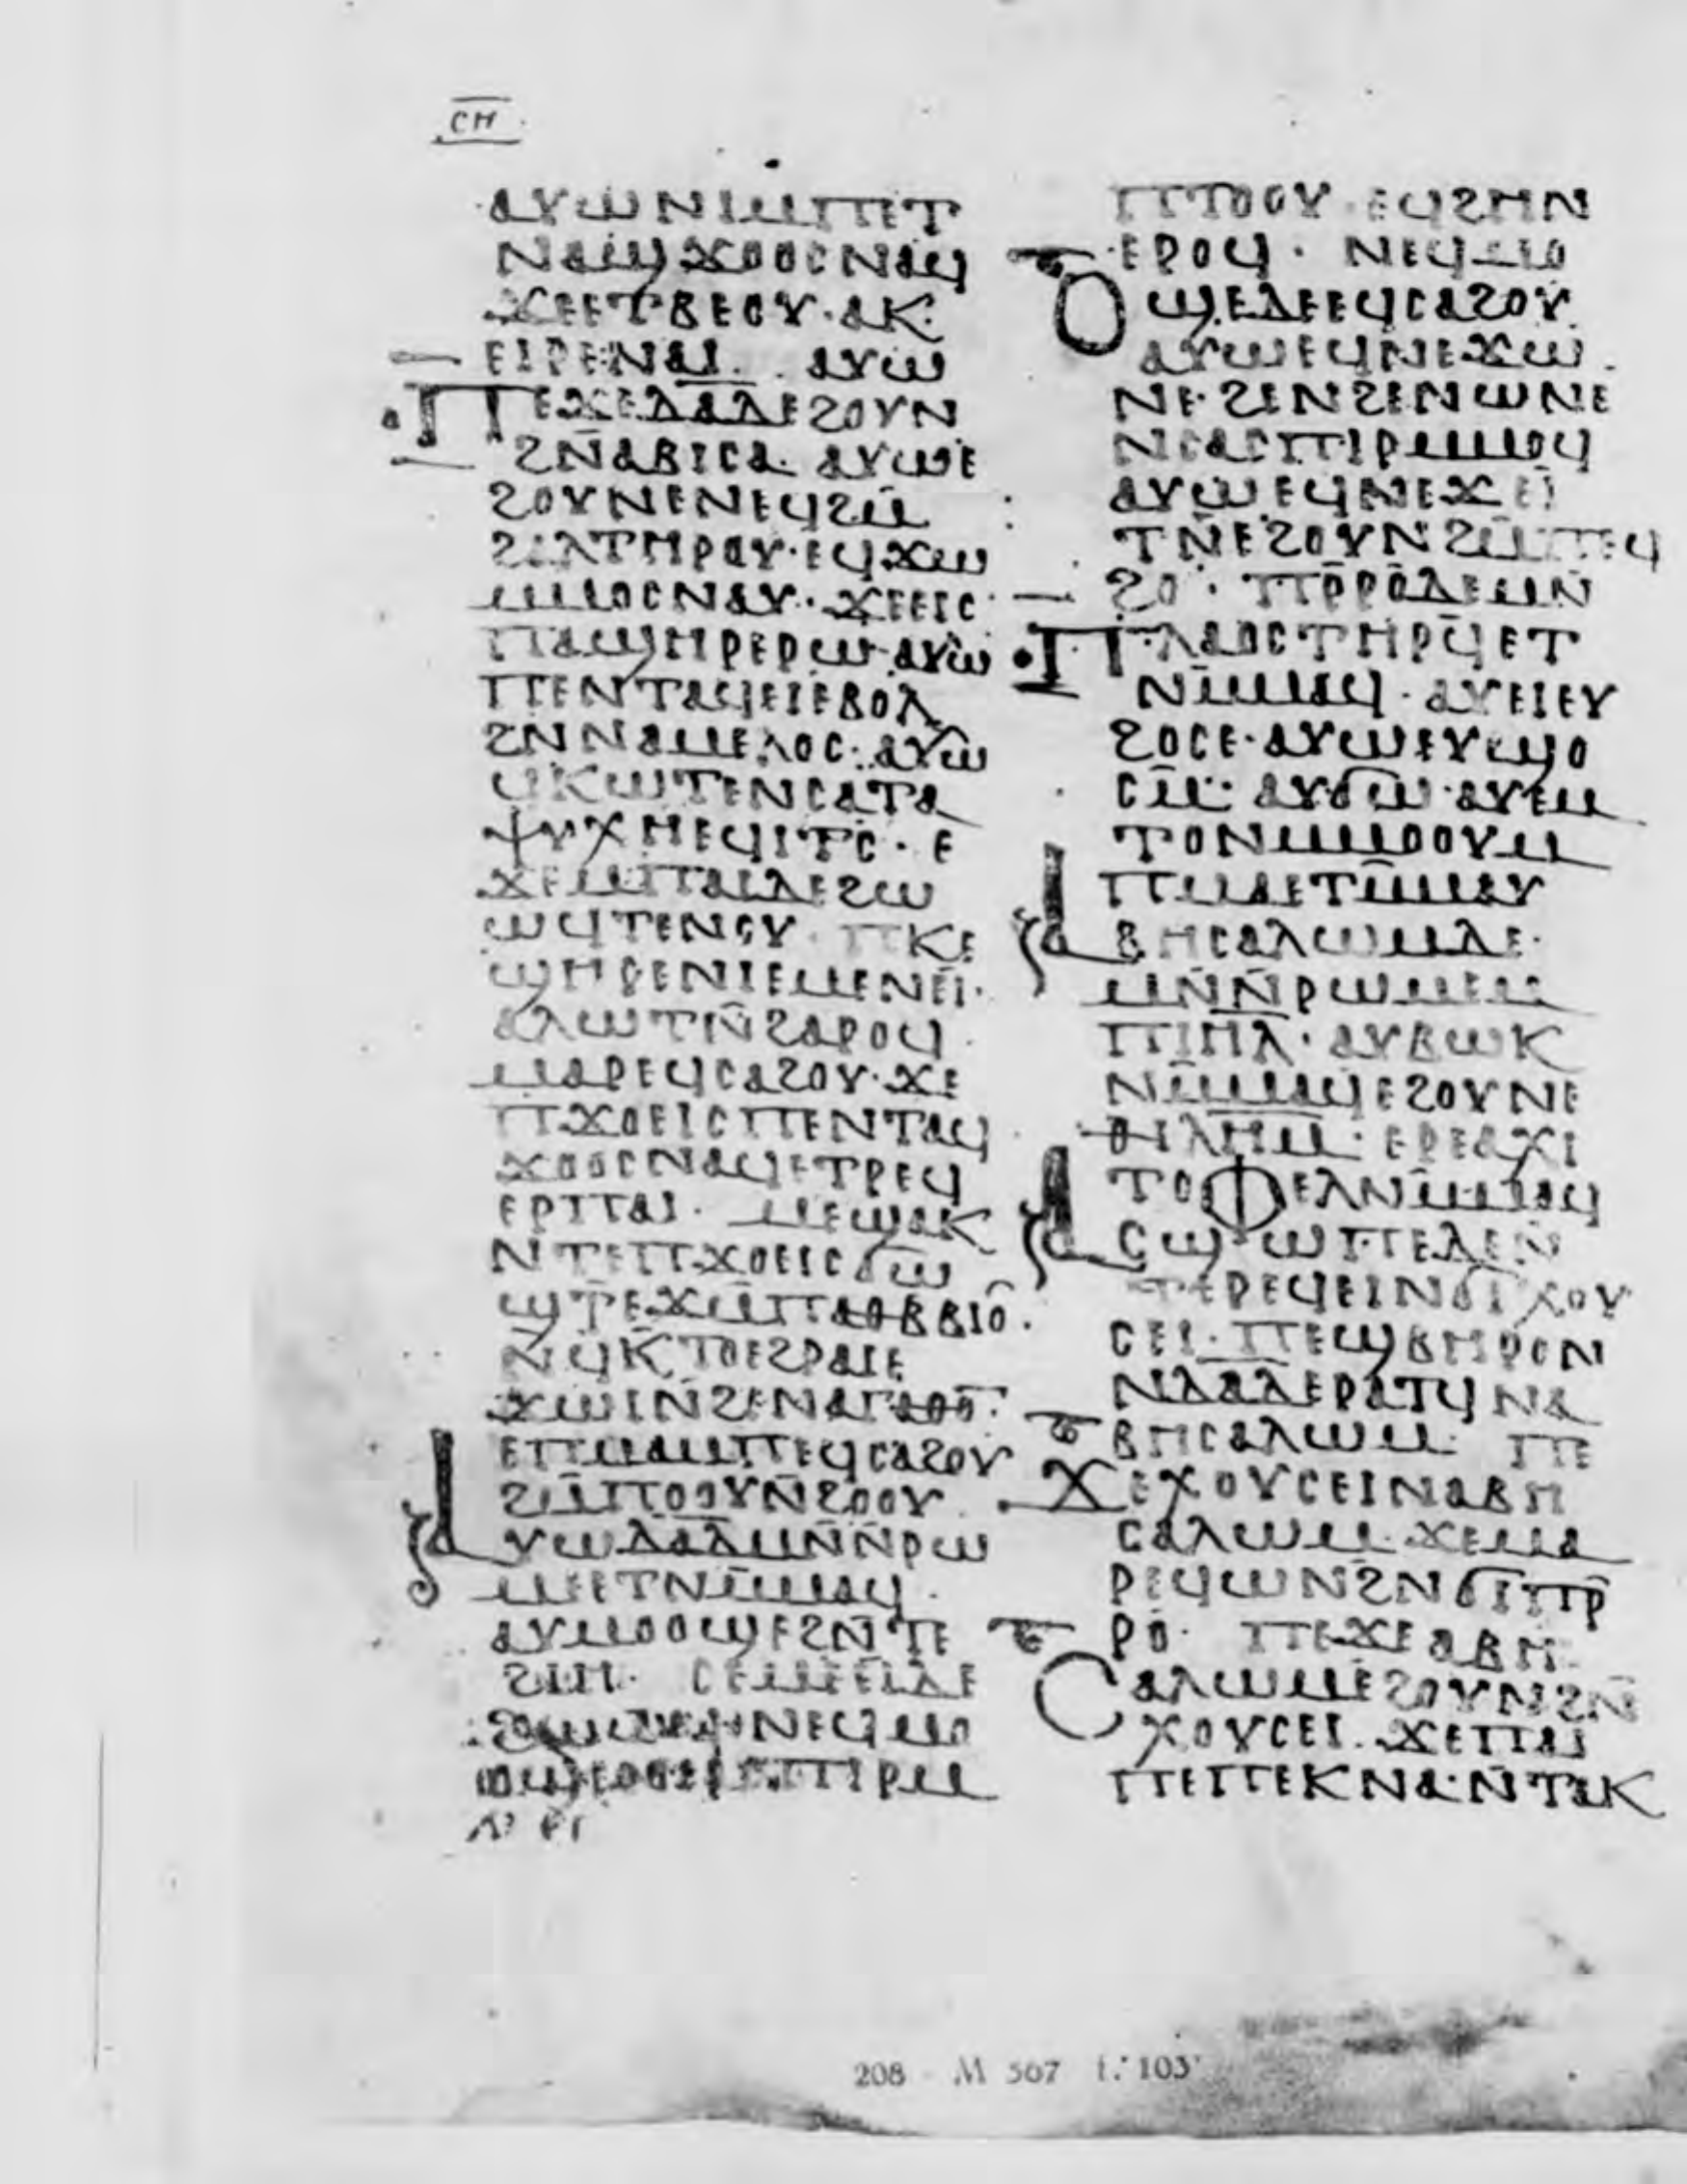 ⲥⲏ
ⲁⲩⲱⲛⲓⲙⲡⲉⲧ
ⲛⲁϣϫⲟⲟⲥⲛⲁϥ
ϫⲉⲉⲧⲃⲉⲟⲩ·ⲁⲕ
ⲉⲓⲣⲉⲛⲁⲓ. ⲁⲩⲱ
ⲡⲉϫⲉⲇⲁⲇⲉϩⲟⲩⲛ
ϩⲛ̄ⲁⲃⲓⲥⲁ· ⲁⲩⲱⲉ
ϩⲟⲩⲛⲉⲛⲉϥϩⲙ̄
ϩⲁⲗⲧⲏⲣⲟⲩ·ⲉϥϫⲱ
ⲙⲙⲟⲥⲛⲁⲩ·ϫⲉⲉⲓⲥ
ⲡⲁϣⲏⲣⲉⲣⲱ·ⲁⲩⲱ
ⲡⲉⲛⲧⲁϥⲉⲓⲉⲃⲟⲗ
ϩⲛⲛⲁⲙⲉⲗⲟⲥ·ⲁⲩⲱ
ϥⲕⲱⲧⲉⲛⲥⲁⲧⲁ
ⲯⲩⲭⲏⲉϥⲓⲧⲥ·ⲉ
ϫⲉⲙⲡⲁⲓⲇⲉϩⲱ
ⲱϥⲧⲉⲛⲟⲩ ⲡⲕⲉ
ϣⲏⲣⲉⲛⲓⲉⲙⲉⲛⲉⲓ·
ⲁⲗⲱⲧⲛ̄ϩⲁⲣⲟϥ
ⲙⲁⲣⲉϥⲥⲁϩⲟⲩ·ϫⲉ
ⲡϫⲟⲉⲓⲥⲡⲉⲛⲧⲁϥ
ϫⲟⲟⲥⲛⲁϥⲉⲧⲣⲉϥ
ⲉⲣⲡⲁⲓ· ⲙⲉϣⲁⲕ
ⲛⲧⲉⲡϫⲟⲉⲓⲥϭⲱ
ϣⲧⲉϫⲙ̄ⲡⲁⲑⲃⲃⲓⲟ·
ⲛϥⲕⲧⲟⲉϩⲣⲁⲓⲉ
ϫⲱⲓⲛ̄ϩⲉⲛⲁⲅⲁⲑⲟⲛ̄
ⲉⲡⲙⲁⲙⲡⲉϥⲥⲁϩⲟⲩ
ϩⲙ̄ⲡⲟⲟⲩⲛ̄ϩⲟⲟⲩ
ⲁⲩⲱⲇⲁⲇⲙⲛ̄ⲛ̄ⲣⲱ
ⲙⲉⲉⲧⲛⲙ̄ⲙⲁϥ.
ⲁⲩⲙⲟⲟϣⲉϩⲛ̄ⲧⲉ
ϩⲓⲏ· ⲥⲉⲙⲉⲉⲓⲇⲉ
ⲛⲉϥⲙⲟ
ⲥⲡⲓⲣⲙ
ⲡⲧⲟⲟⲩ ⲉϥϩⲏⲛ
ⲉⲣⲟϥ· ⲛⲉϥⲙⲟ
ⲟϣⲉⲇⲉⲉϥⲥⲁϩⲟⲩ
ⲁⲩⲱⲉϥⲛⲉϫⲱ
ⲛⲉ·ϩⲉⲛϩⲉⲛⲱⲛⲉ
ⲛⲥⲁⲥⲡⲓⲣⲙⲙⲟϥ
ⲁⲩⲱⲉϥⲛⲉϫⲉⲓ
ⲧⲛ̄ⲉϩⲟⲩⲛϩⲙ̄ⲡⲉϥ
ϩⲟ· ⲡⲣ̄ⲣⲟⲇⲉⲙⲛ̄
ⲡⲗⲁⲟⲥⲧⲏⲣϥⲉⲧ
ⲛⲙ̄ⲙⲁϥ·ⲁⲩⲉⲓⲉⲩ
ϩⲟⲥⲉ·ⲁⲩⲱⲉⲩⲱϣⲟ
ⲥⲙ̄· ⲁⲩϭⲱ·ⲁⲩⲙ
ⲧⲟⲛⲙⲙⲟⲟⲩⲙ
ⲡⲙⲁⲉⲧⲙ̄ⲙⲁⲩ
ⲁⲃⲏⲥⲁⲗⲱⲙⲇⲉ·
ⲙⲛ̄ⲛ̄ⲣⲱⲙⲉⲙ
ⲡⲓⲏⲗ·ⲁⲩⲃⲱⲕ
ⲛⲙ̄ⲙⲁϥⲉϩⲟⲩⲛⲉ
ⲑⲓⲗⲏⲙ·ⲉⲣⲉⲁⲭⲓ
ⲧⲟⲫⲉⲗⲛⲙ̄ⲙⲁϥ
ⲁⲥϣⲱⲡⲉⲇⲉⲛ̄
ⲧⲉⲣⲉϥⲉⲓⲛϭⲓⲭⲟⲩ
ⲥⲉⲓ·ⲡⲉϣⲃⲏⲣⲟⲛ
ⲛⲇⲁⲇⲉⲣⲁⲧϥⲛⲁ
ⲃⲏⲥⲁⲗⲱⲙ· ⲡⲉ
ϫⲉⲭⲟⲩⲥⲉⲓⲛⲁⲃⲏ
ⲥⲁⲗⲱⲙ·ϫⲉⲙⲁ
ⲣⲉϥⲱⲛϩⲛϭⲓⲡⲣ̄
ⲣⲟ· ⲡⲉϫⲉⲁⲃⲏ
ⲥⲁⲗⲱⲙⲉϩⲟⲩⲛϩⲛ̄
ⲭⲟⲩⲥⲉⲓ·ϫⲉⲡⲁⲓ
ⲡⲉⲡⲉⲕⲛⲁ·ⲛ̄ⲧⲁⲕ
208 M 567 f. 103